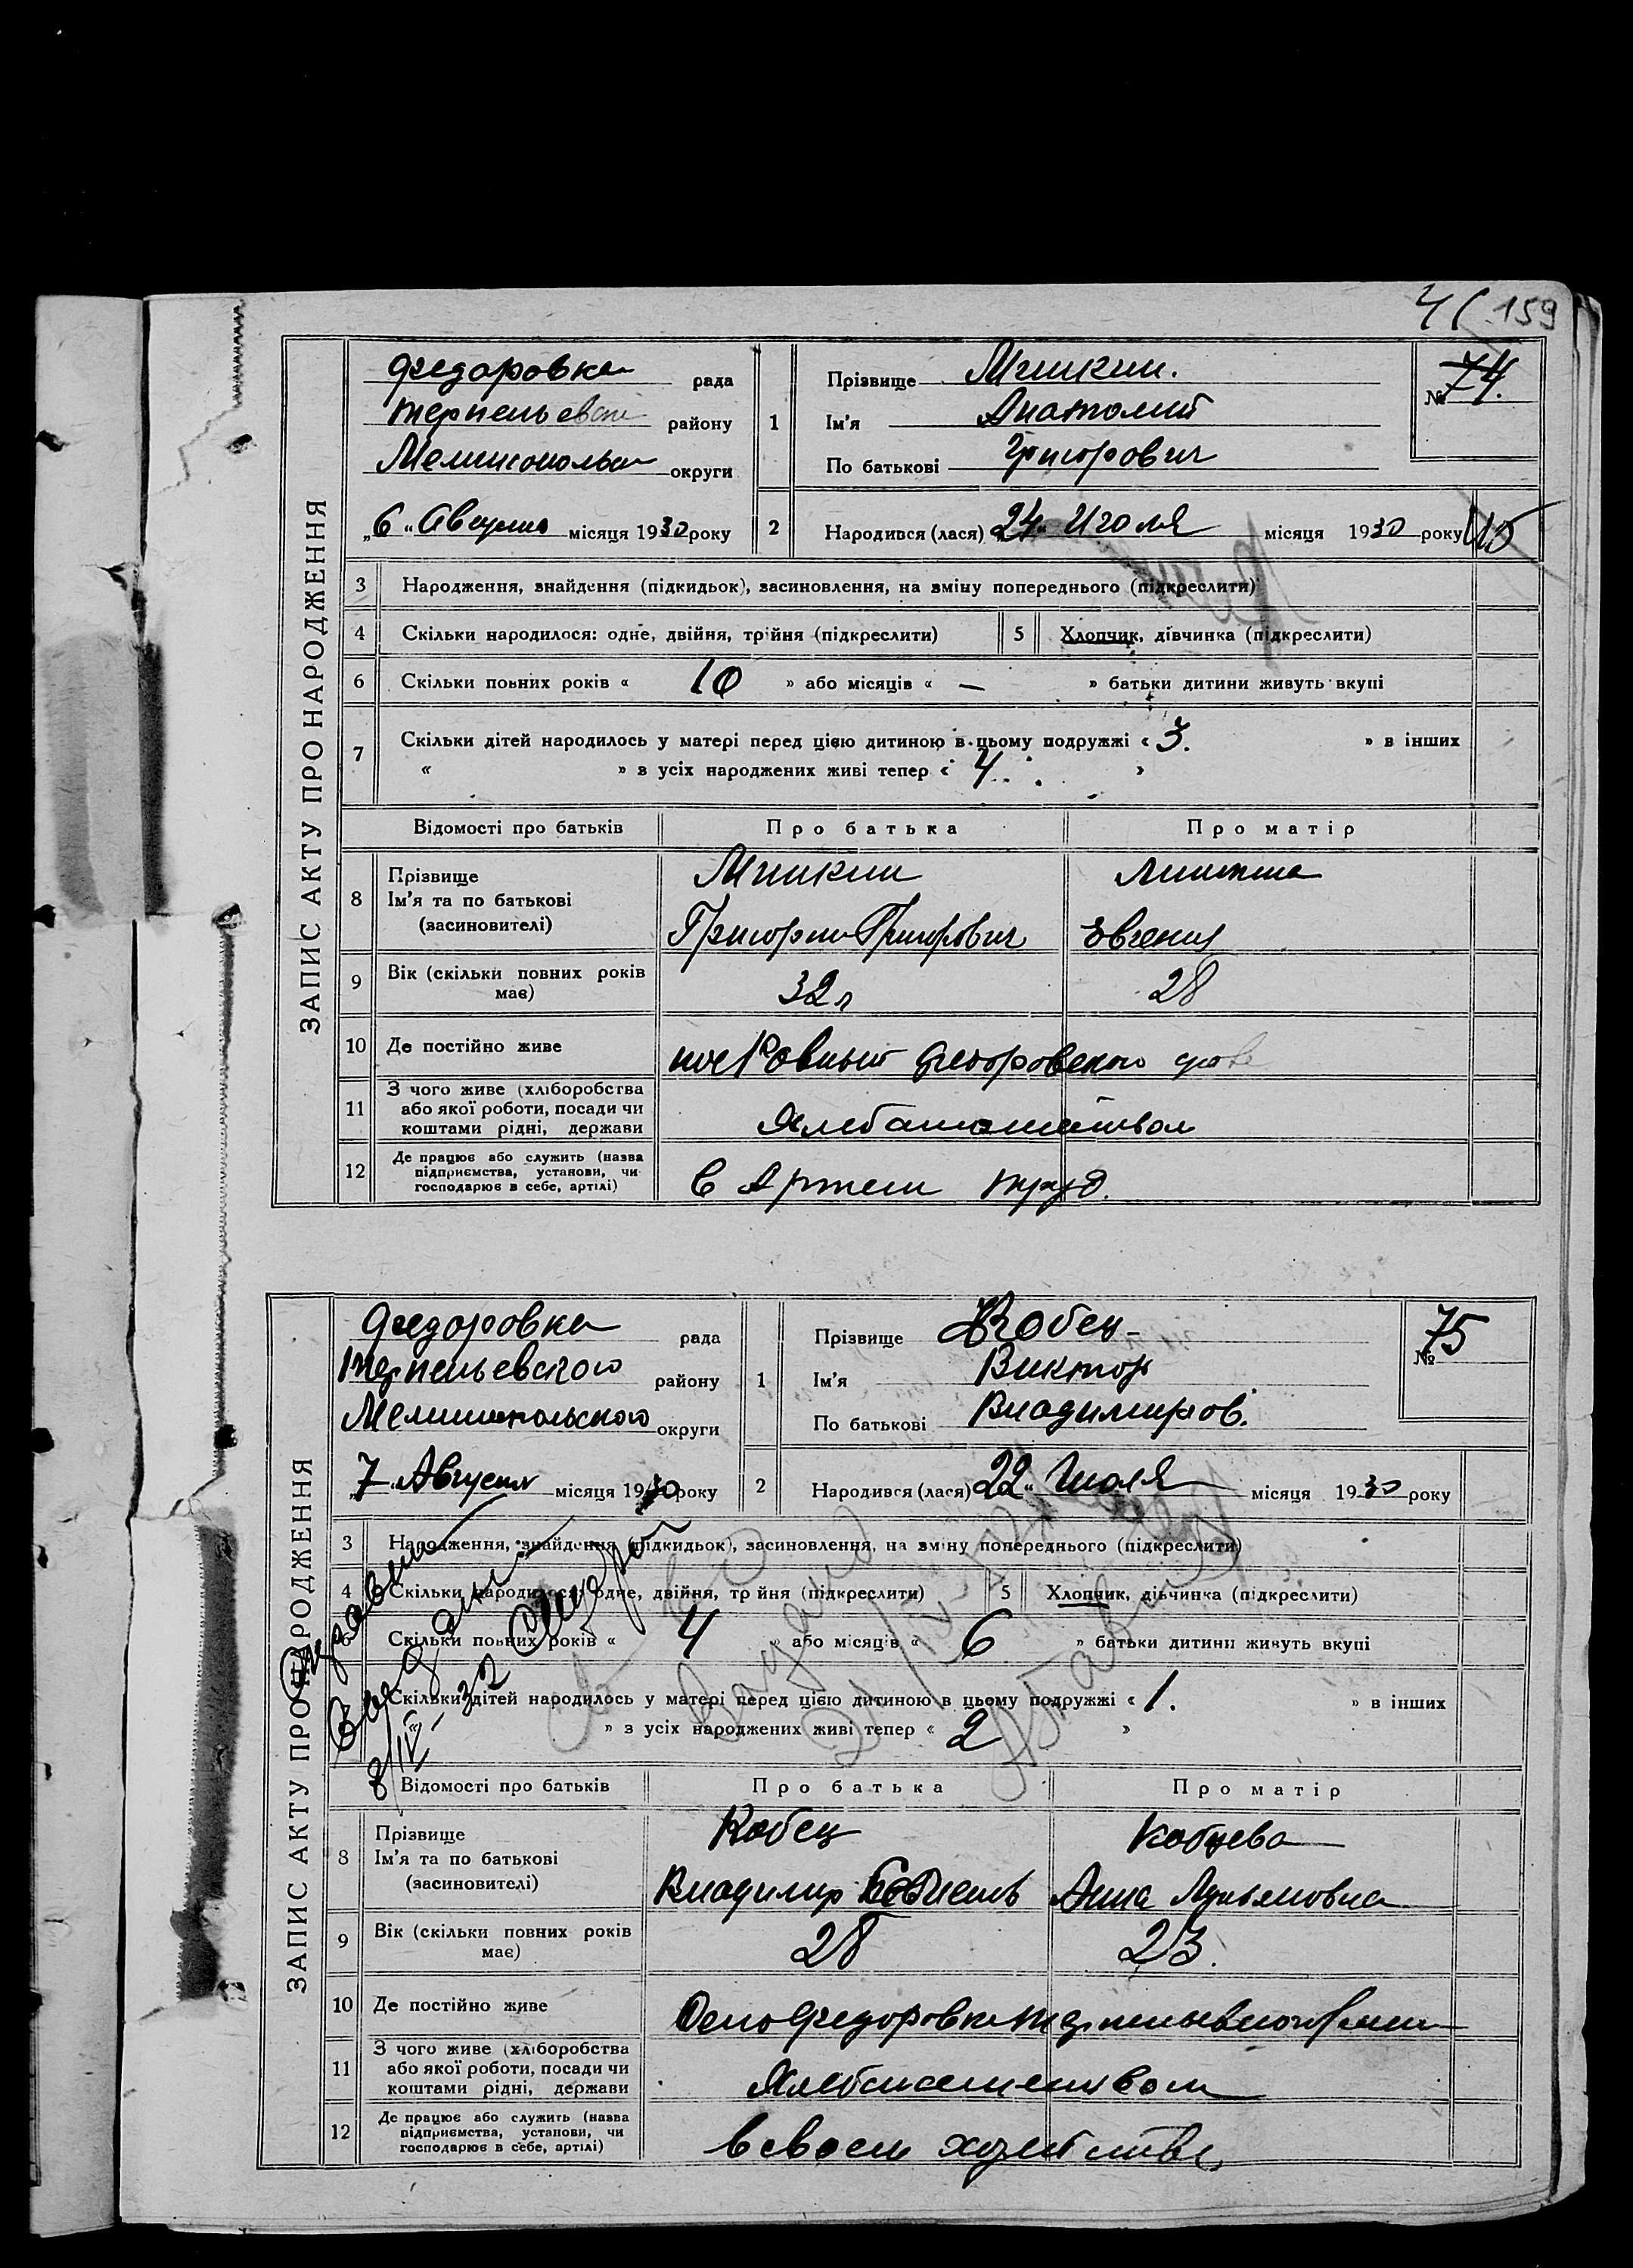 41 159
ЗАПИС АКТУ ПРО НАРОДЖЕННЯ
Федоровка рада
Терпеньевск району
Мелитопольск округи
„6" Августа місяця 1930 року
1 Прізвище Мишкин.
Ім'я Анатолий
По батькові Григорович
№ 74.
2 Народився (лася) 24" Июля місяця 1930 року
3 Народження, знайдення (підкидьок), засиновлення, на зміну попереднього (підкреслити)
4 Скільки народилося: одне, двійня, трійня (підкреслити) 5 Хлопчик, дівчинка (підкреслити)
6 Скільки повних років « 10 » або місяців « — » батьки дитини живуть вкупі
7 Скільки дітей народилось у матері перед цією дитиною в цьому подружжі « 3. » в інших
« » з усіх народжених живі тепер « 4 »
Відомості про батьків Про батька Про матір
8 Прізвище
Ім'я та по батькові
(засиновителі)
Мишкин
Григорий Григорович Евгения
9 Вік (скільки повних років
має)
32 л 28
10 Де постійно живе Федоровского
11 З чого живе (хліборобства
або якої роботи, посади чи
коштами рідні, держави
Хлебопашеством
12 Де працює або служить (назва
підприємства, установи, чи
господарює в себе, артілі)
в Артели труд.
ЗАПИС АКТУ ПРО НАРОДЖЕННЯ
Федоровка рада
Терпеньевского району
Мелитопольского округи
„7 Августа місяця 1930 року
1 Прізвище Кобец
Ім'я Виктор
По батькові Владимиров.
№ 75
2 Народився (лася) 22" Июля місяця 1930 року
3 Народження, знайдення (підкидьок), засиновлення, на зміну попереднього (підкреслити)
4 Скільки народилося: одне, двійня, трійня (підкреслити) 5 Хлопчик, дівчинка (підкреслити)
Скільки повних років « 4 » або місяців « 6 » батьки дитини живуть вкупі
Скільки дітей народилось у матері перед цією дитиною в цьому подружжі « 1. » в інших
« » з усіх народжених живі тепер « 2 »
8/IV-32
Відомості про батьків Про батька Про матір
8 Прізвище
Ім'я та по батькові
(засиновителі)
Кобец Кобцева
Владимир Анна Лукьяновна
9 Вік (скільки повних років
має)
28 23.
10 Де постійно живе Село Федоровка
11 З чого живе (хліборобства
або якої роботи, посади чи
коштами рідні, держави
Хлебопашеством
12 Де працює або служить (назва
підприємства, установи, чи
господарює в себе, артілі)
в своем хозяйстве